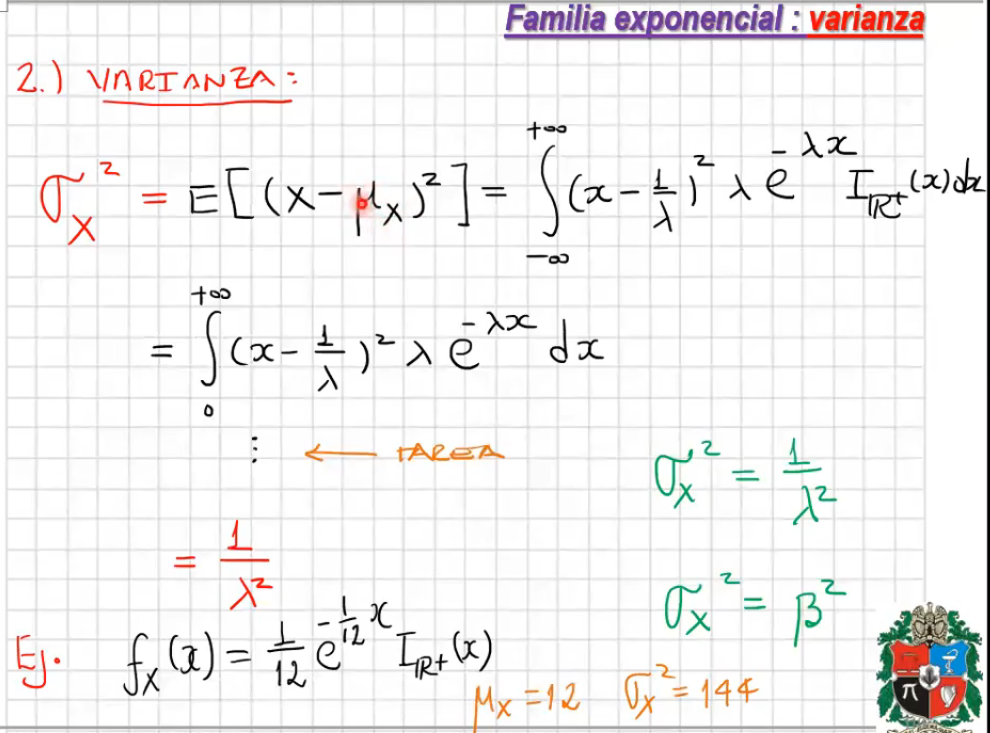 Familia exponencial : varianza
2.) VARIANZA:
σ_X² = E[(X-μ_X)²] = ∫_{-∞}^{+∞} (x - 1/λ)² λ e^{-λx} I_{ℝ⁺}(x)dx
= ∫_0^{+∞} (x - 1/λ)² λ e^{-λx} dx
⋮ ← TAREA
σ_X² = 1/λ²
= 1/λ²
σ_X² = β²
Ej. f_X(x) = 1/12 e^{-1/12 x} I_{ℝ+}(x)
μ_X = 12 σ_X² = 144
π